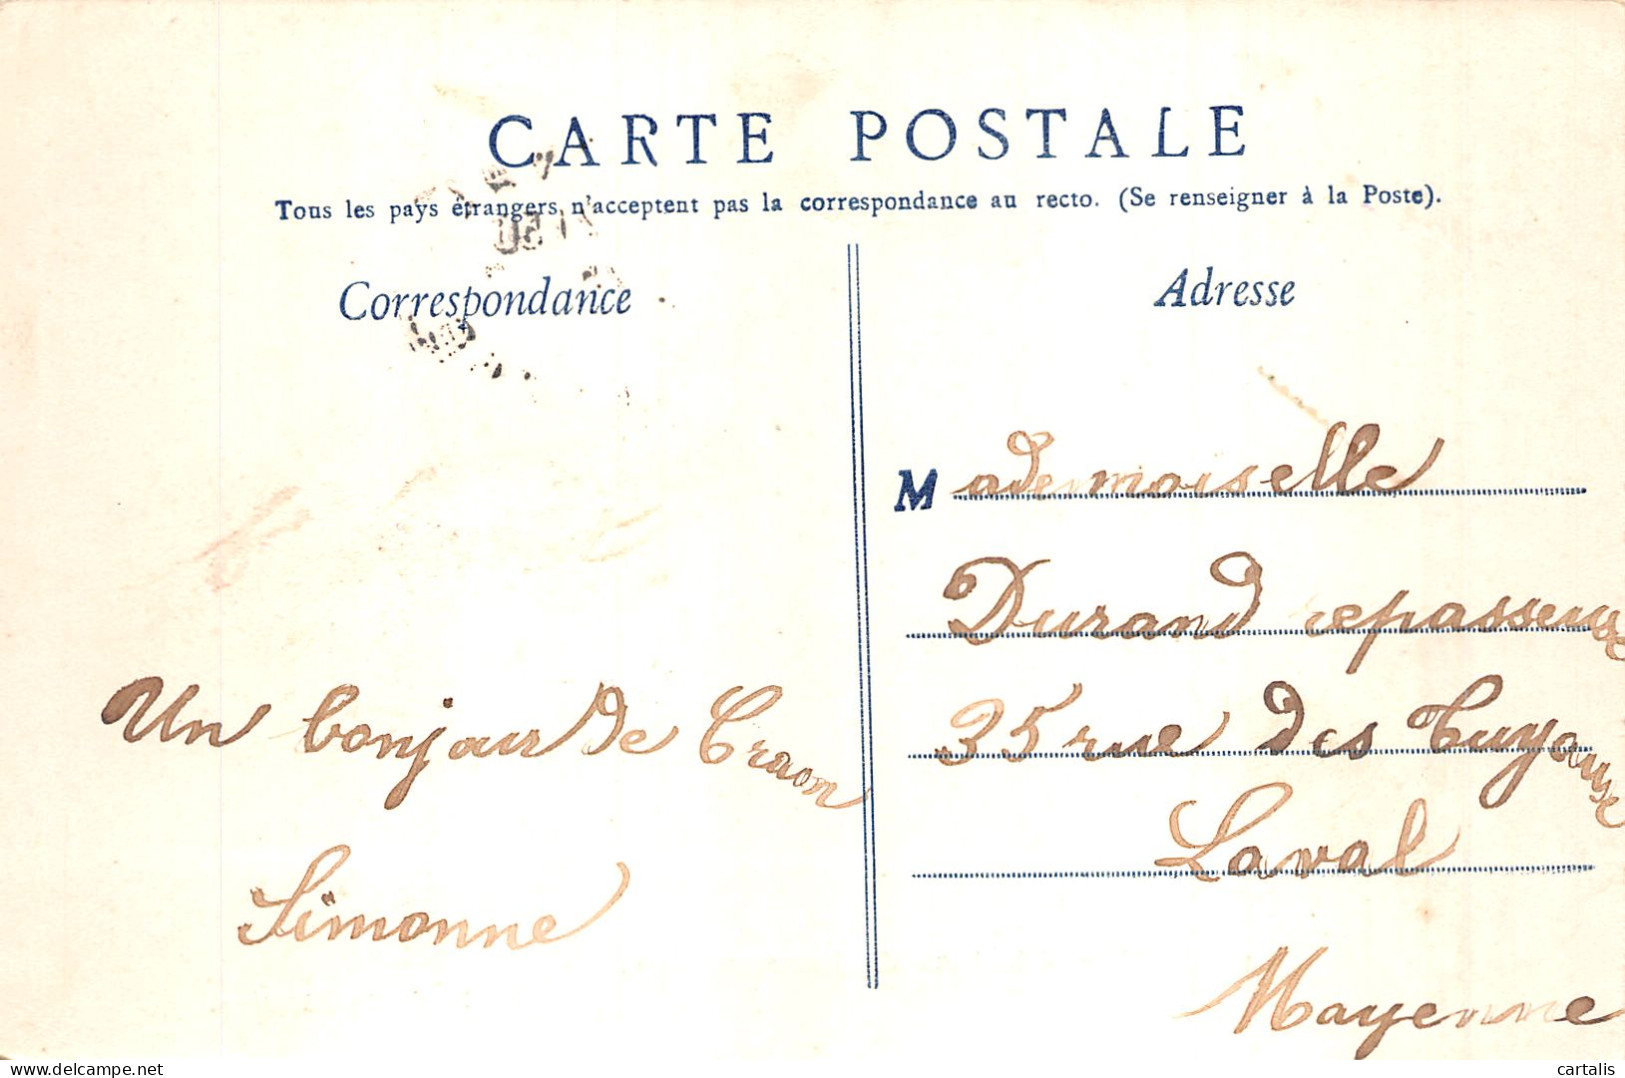 CARTE POSTALE
Tous les pays étrangers n'acceptent pas la correspondance au recto. (Se renseigner à la Poste).
Correspondance
Un bonjour de Craon
Simonne
Adresse
Mademoiselle
Durand repasseuse
35 rue des Tuyause
Laval
Mayenne
delcampe.net
cartalis